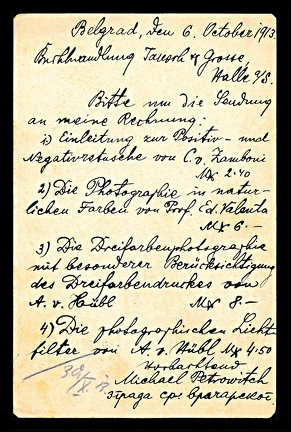 Belgrad, den 6. October 1913.
Buchhandlung Tausch & Grosse,
Halle a/S.
Bitte um die Sendung
an meine Rechnung:
1) Einleitung zur Positiv- und
Negativretusche von C. v. Zamboni
Mk 2.40
2) Die Photographie in natur-
lichen Farben von Prof. Ed. Valenta
Mk 6.—
3) Die Dreifarbenphotographie
mit besonderer Berücksichtigung
des Dreifarbendruckes von
A. v. Hübl Mk 8.—
4) Die photographischen Licht
filter von A. v. Hübl Mk 4.50
Hochachtend
Michael Petrowitch
зграда срп.